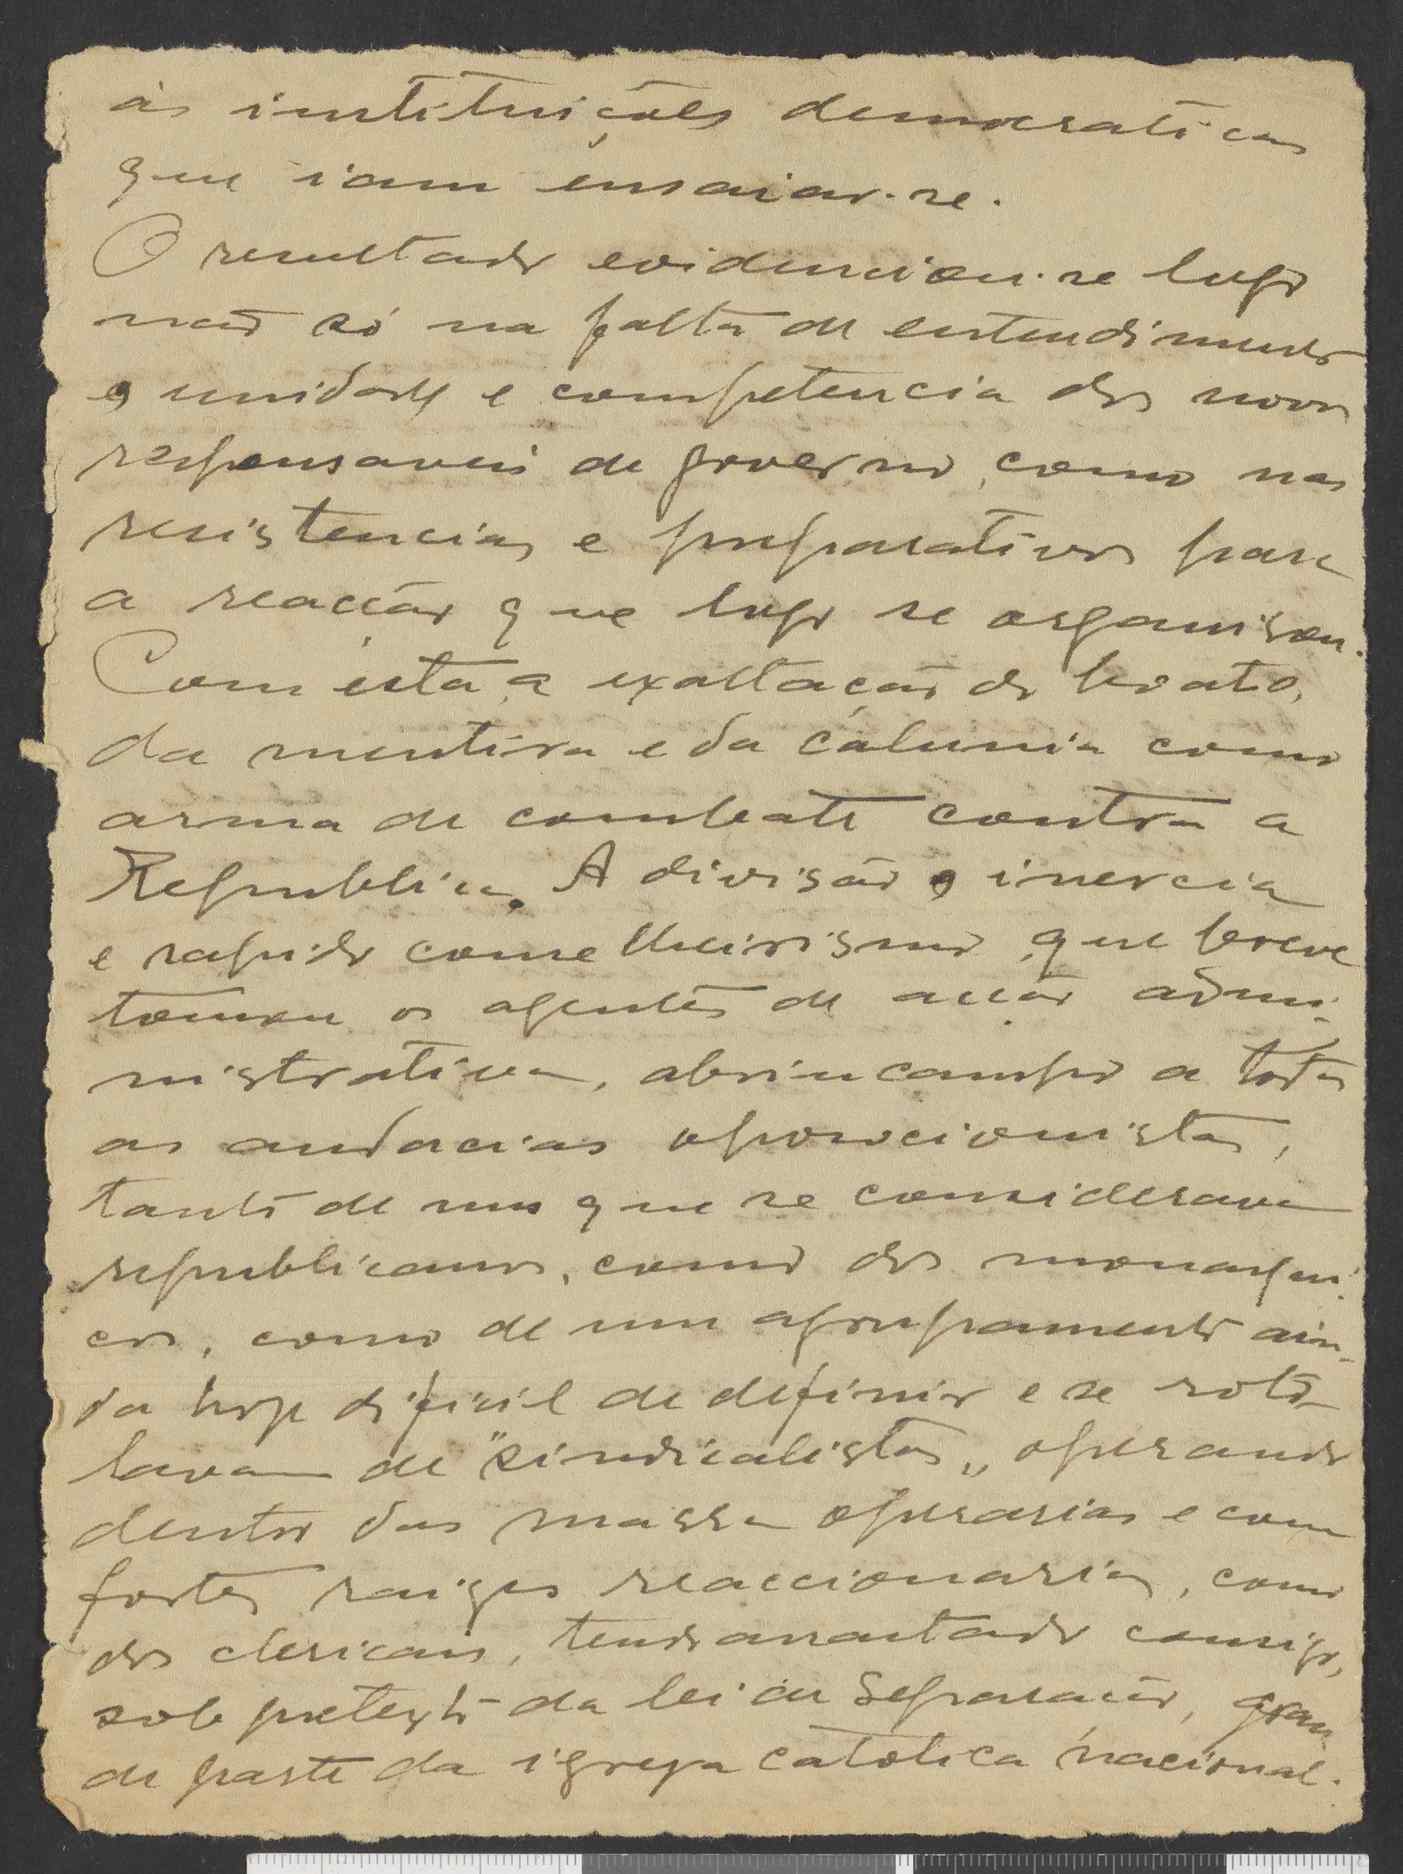 às instituições democraticas
que iam ensaiar-se.
O resultado evidenciou-se logo
não só na falta de entendimento
e unidade e competencia dos novos
responsaveis de governo, como nas
resistencias e preparativos para
a reacção que logo se organisou.
Com esta, a exaltação do boato,
da mentira e da calunia como
arma de combate contra a
Republica. A divisão, inercia
e rapido conselheirismo, que breve
tomou os agentes de acção admi-
nistrativa, abriu campo a todas
as audacias oposicionistas,
tanto de uns que se consideravam
republicanos, como dos monarqui-
cos, como de um agrupamento ain-
da hoje dificil de definir e se roto-
lavam de "sindicalistas", operando
dentro das massas operarias e com
fortes raizes reaccionarias, como
dos clericais, tendo arrastado comsigo,
sob pretexto da lei da Separação, gran-
de parte da igreja catolica nacional.